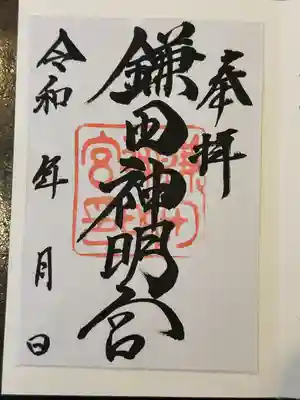 奉拝
鎌田神明宮
令和 年 月 日